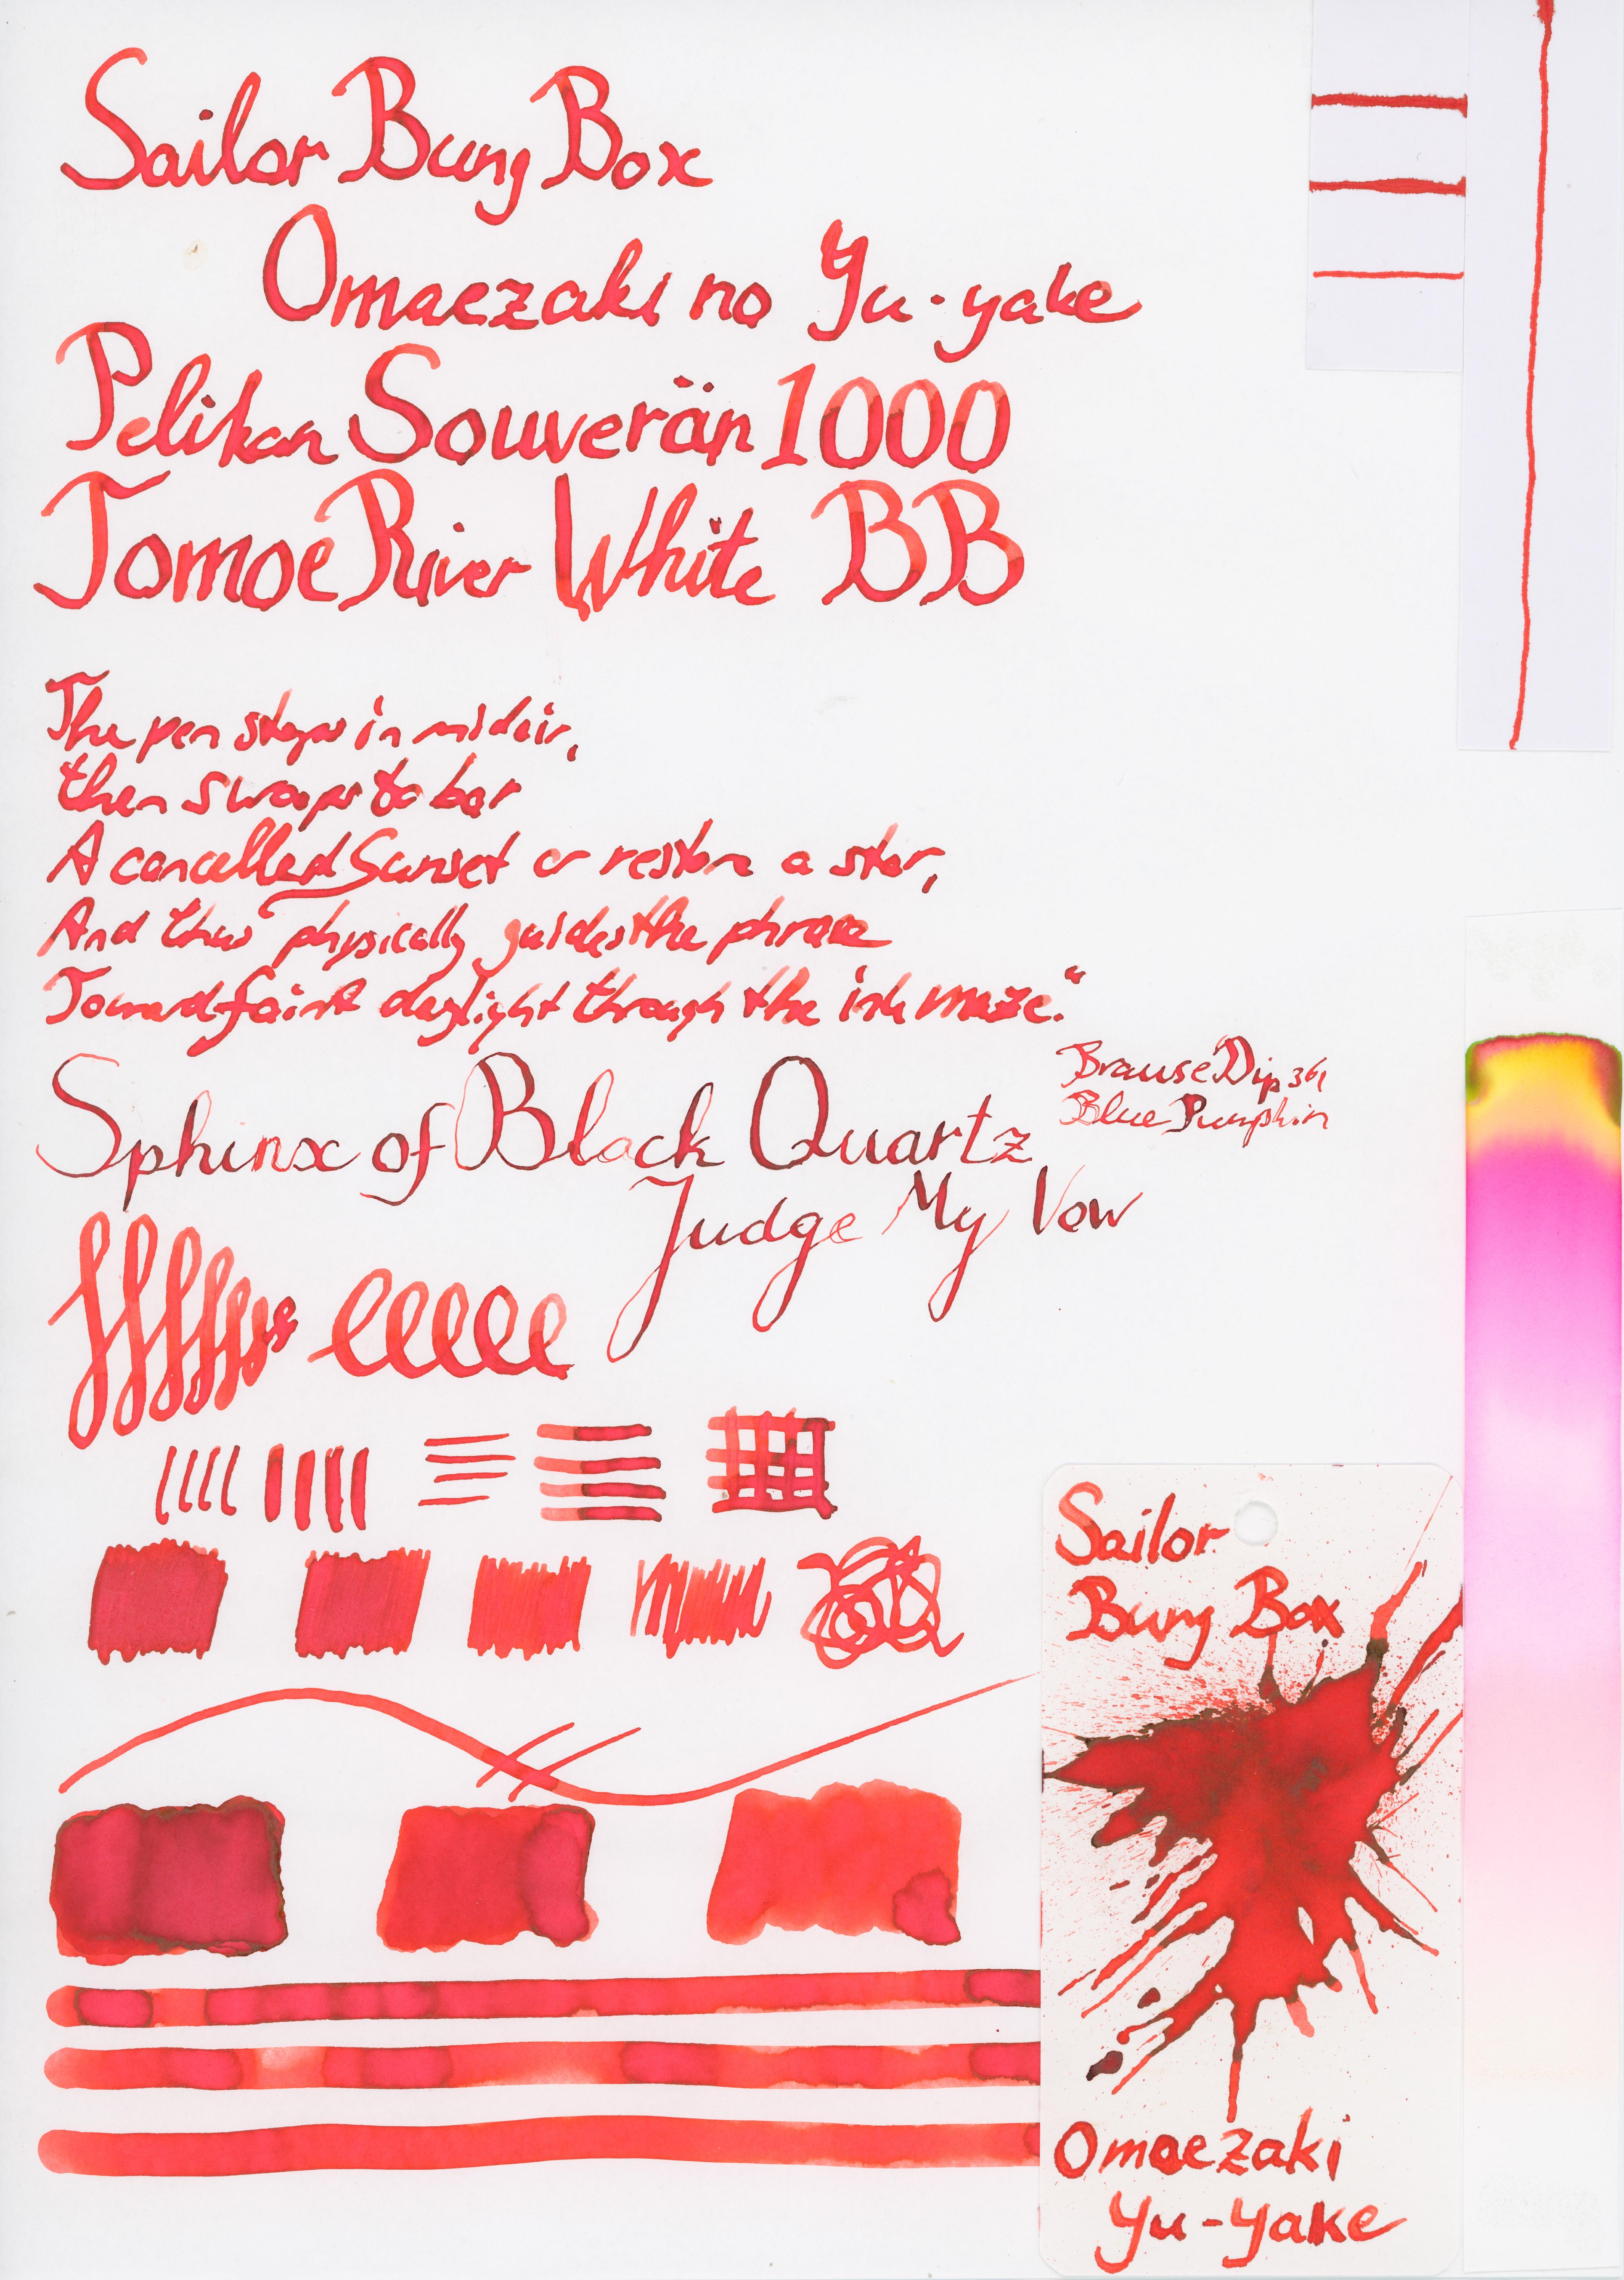 Sailor Bung Box
Omaezaki no Yu-yake
Pelikan Souverän 1000
Tomoe River White BB
The pen stops in midair,
then swoops to bar
A cancelled Sunset or restore a star,
And thus physically guides the phrase
Toward faint daylight through the ink maze."
Brause Dip 361
Blue Pumpkin
Sphinx of Black Quartz
Judge My Vow
Sailor
Bung Box
Omaezaki
Yu-Yake